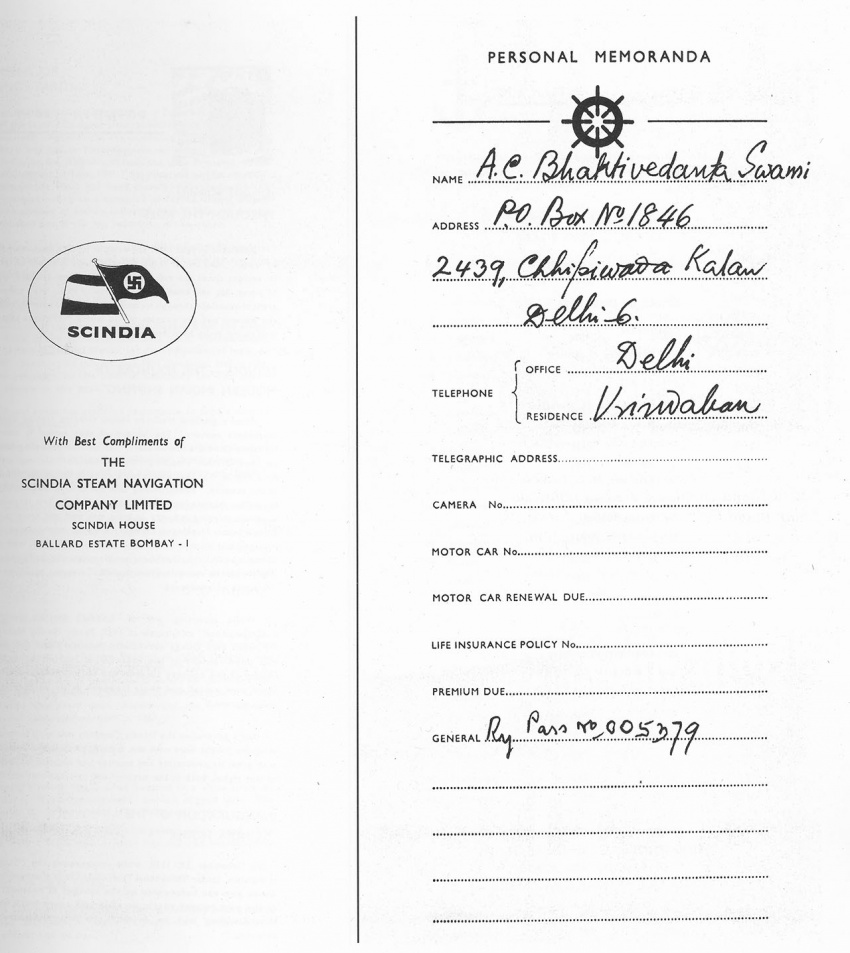 SCINDIA
With Best Compliments of
THE
SCINDIA STEAM NAVIGATION
COMPANY LIMITED
SCINDIA HOUSE
BALLARD ESTATE BOMBAY - I
PERSONAL MEMORANDA
NAME A.C. Bhaktivedanta Swami
ADDRESS P.O. Box No 1846
2439, Chhipiwada Kalan
Delhi-6.
TELEPHONE
OFFICE Delhi
RESIDENCE Vrindaban
TELEGRAPHIC ADDRESS
CAMERA No.
MOTOR CAR No.
MOTOR CAR RENEWAL DUE
LIFE INSURANCE POLICY No.
PREMIUM DUE
GENERAL Ry Pass No 005379